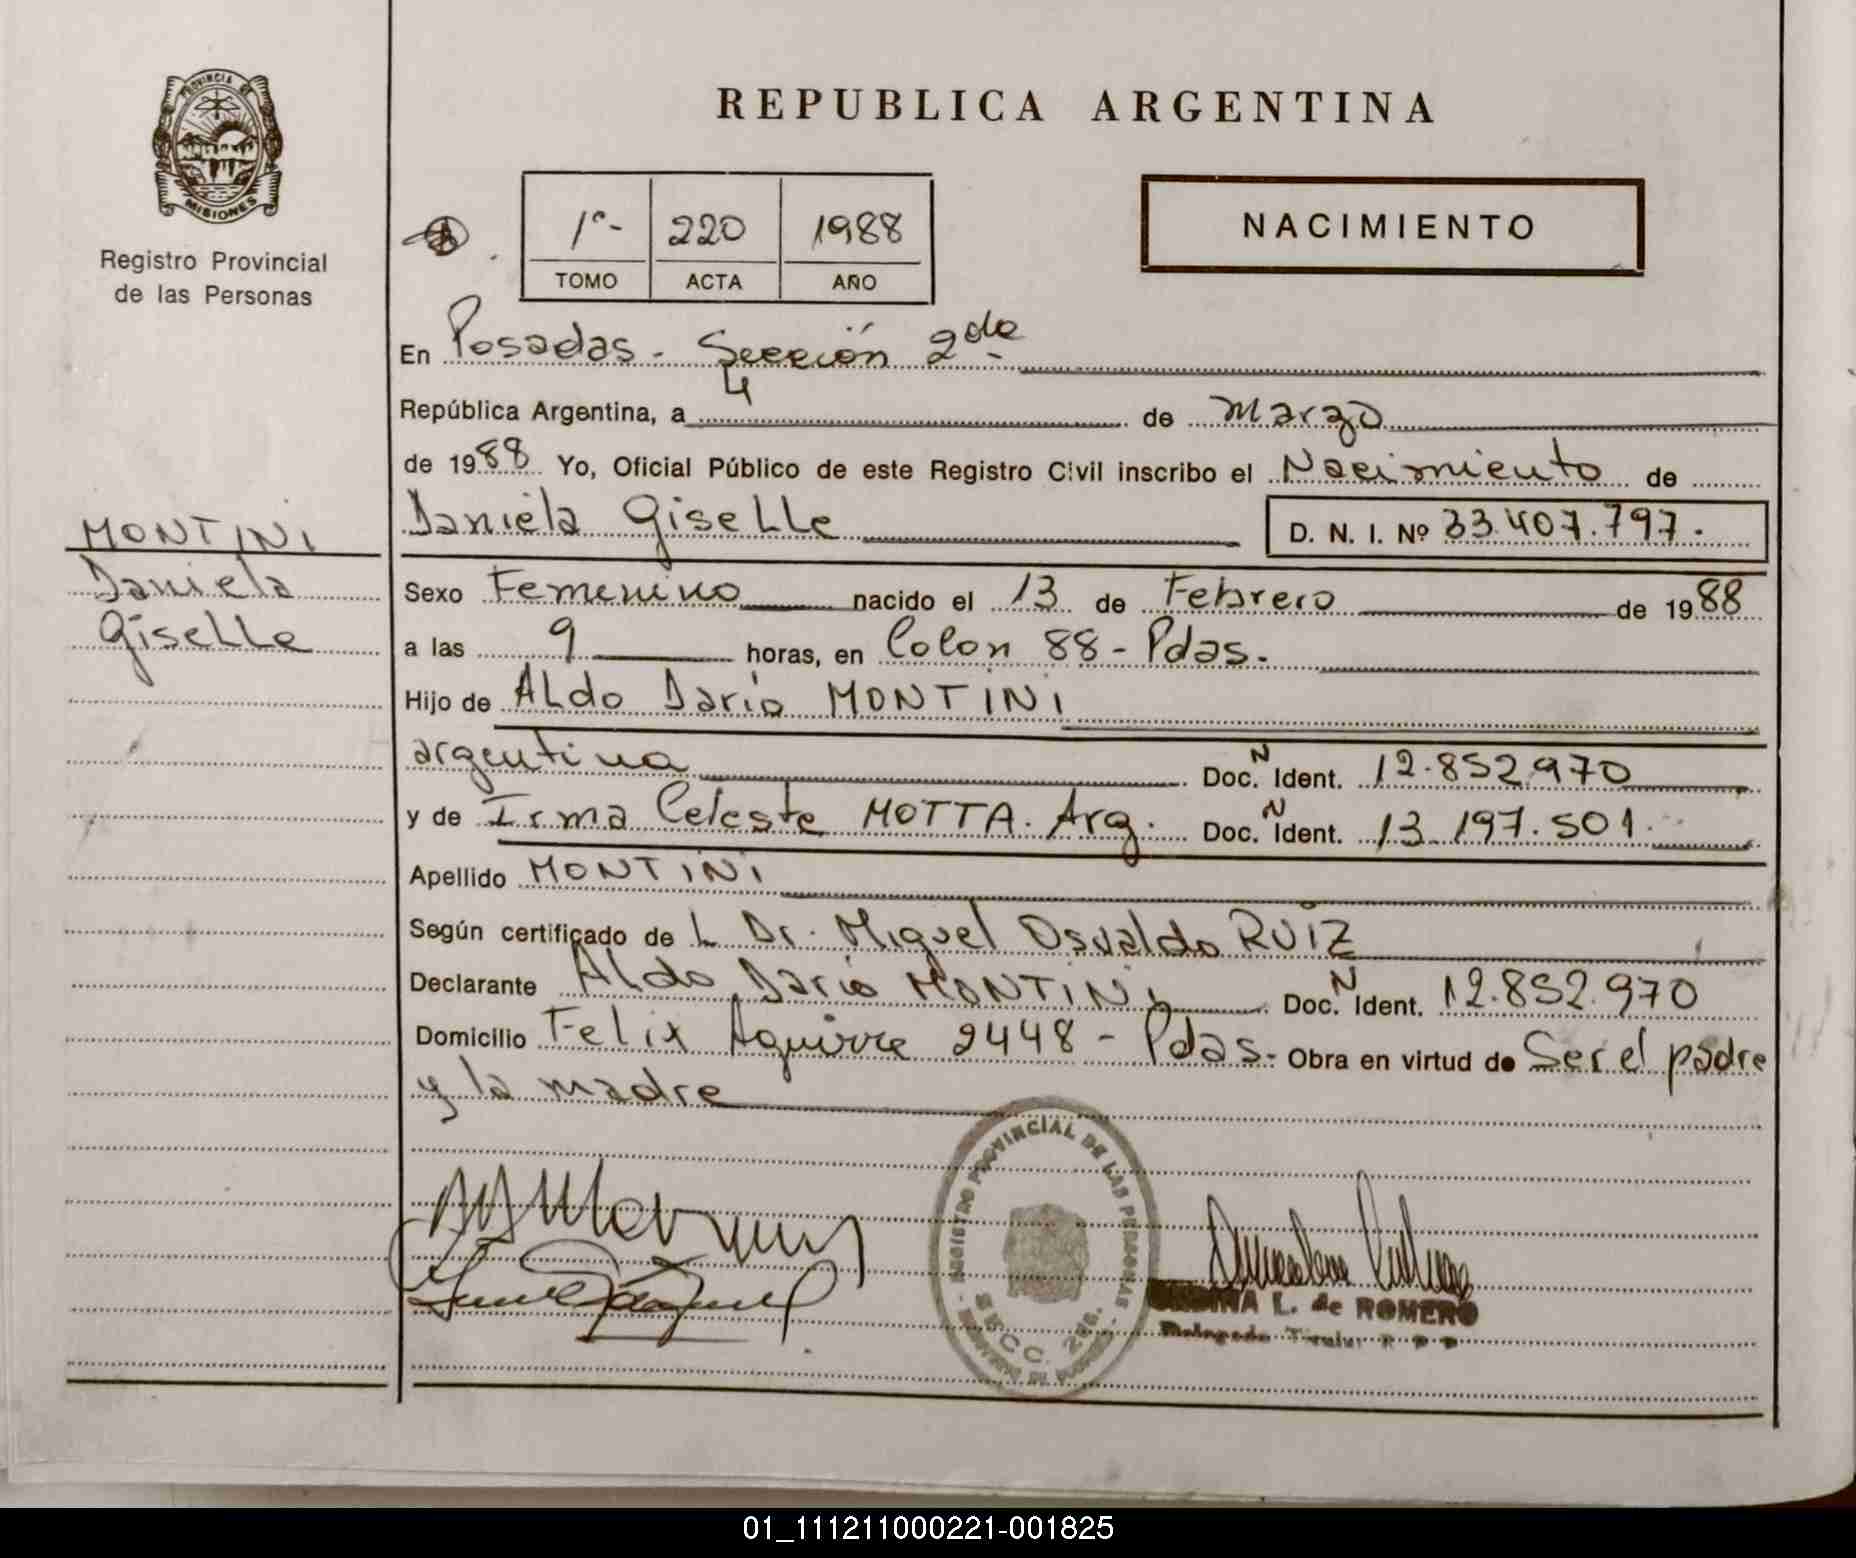 PROVINCIA DE
MISIONES
Registro Provincial
de las Personas
MONTINI
Daniela
Giselle
REPUBLICA ARGENTINA
1º- 220 1988
TOMO ACTA AÑO
NACIMIENTO
En Posadas - Sección 2da
República Argentina, a 4 de Marzo
de 1988 Yo, Oficial Público de este Registro Civil inscribo el Nacimiento de
Daniela Giselle D. N. I. Nº 33.407.797.
Sexo Femenino nacido el 13 de Febrero de 1988
a las 9 horas, en Colon 88 - Pdas.
Hijo de Aldo Darío MONTINI
argentina Doc. N Ident. 12.852.970
y de Irma Celeste MOTTA. Arg. Doc. N Ident. 13.197.501.
Apellido MONTINI
Según certificado de L Dr. Miguel Osvaldo RUIZ
Declarante Aldo Darío MONTINI Doc. N Ident. 12.852.970
Domicilio Felix Aguirre 2448 - Pdas. Obra en virtud de Ser el padre
y la madre
REGISTRO PROVINCIAL DE LAS PERSONAS
SECC. 2da.
L. de ROMERO
Titular
01_111211000221-001825